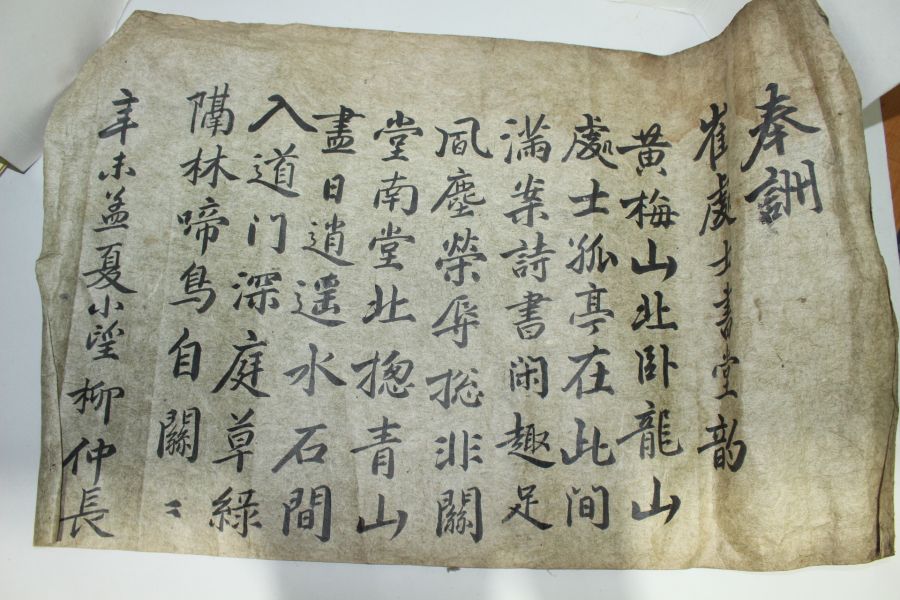 奉詶
崔處士書堂韵
黄梅山北卧龍山
處士孤亭在此间
滿案詩書闲趣足
風塵榮辱捴非關
堂南堂北揔青山
盡日逍遥水石間
入道门深庭草綠
隔林啼鳥自關〻
辛未孟夏小望 柳仲長